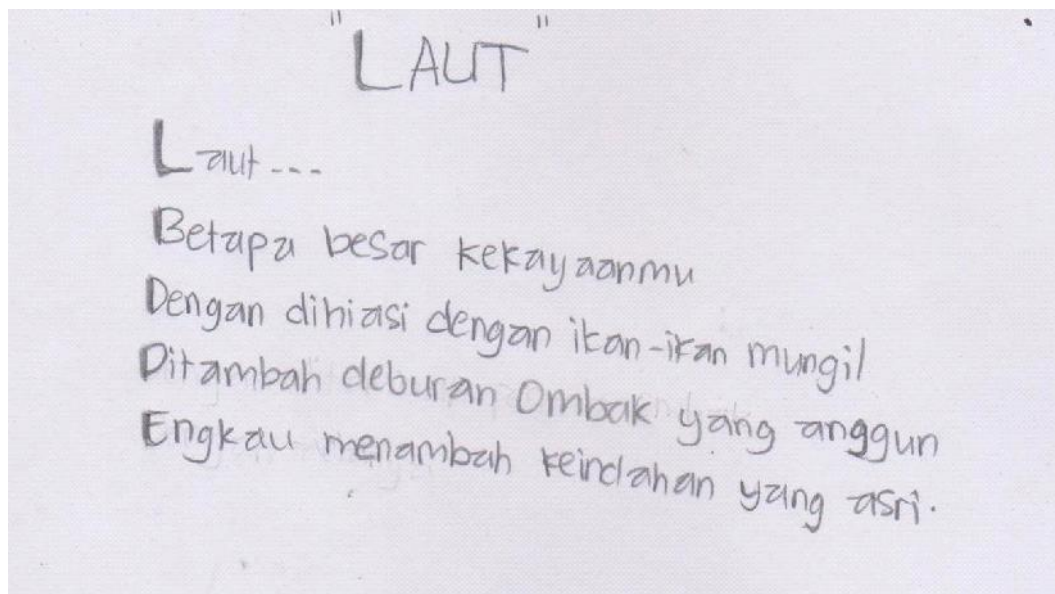 "LAUT"
Laut...
Betapa besar kekayaanmu
Dengan dihiasi dengan ikan-ikan mungil
Ditambah deburan Ombak yang anggun
Engkau menambah keindahan yang asri.